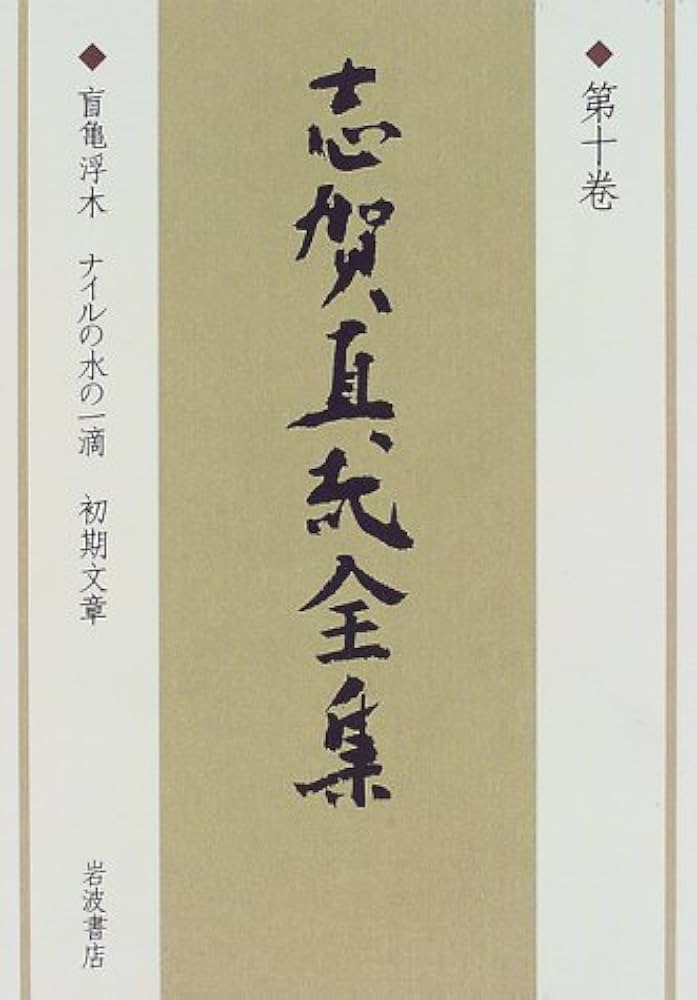 ◆第十卷
志賀直哉全集
◆盲亀浮木　ナイルの水の一滴　初期文章
岩波書店